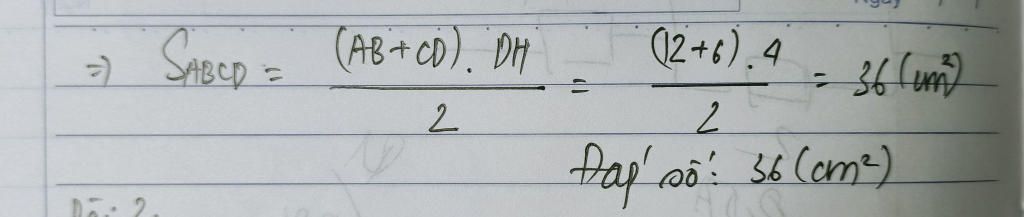 => S_ABCD = (AB+CD). DH / 2 = (12+6). 4 / 2 = 36 (cm²)
Đáp số: 36 (cm²)